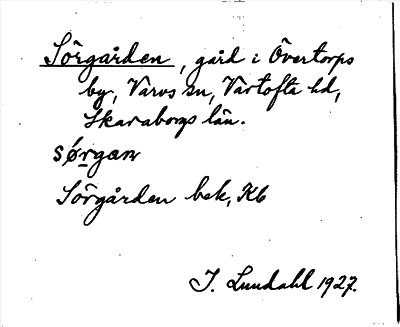 Sörgården, gård i Övertorps
by, Varvs sn, Vartofta hd,
Skaraborgs län.
sø̀rgan
Sörgården bek, Kb
I. Lundahl 1927.